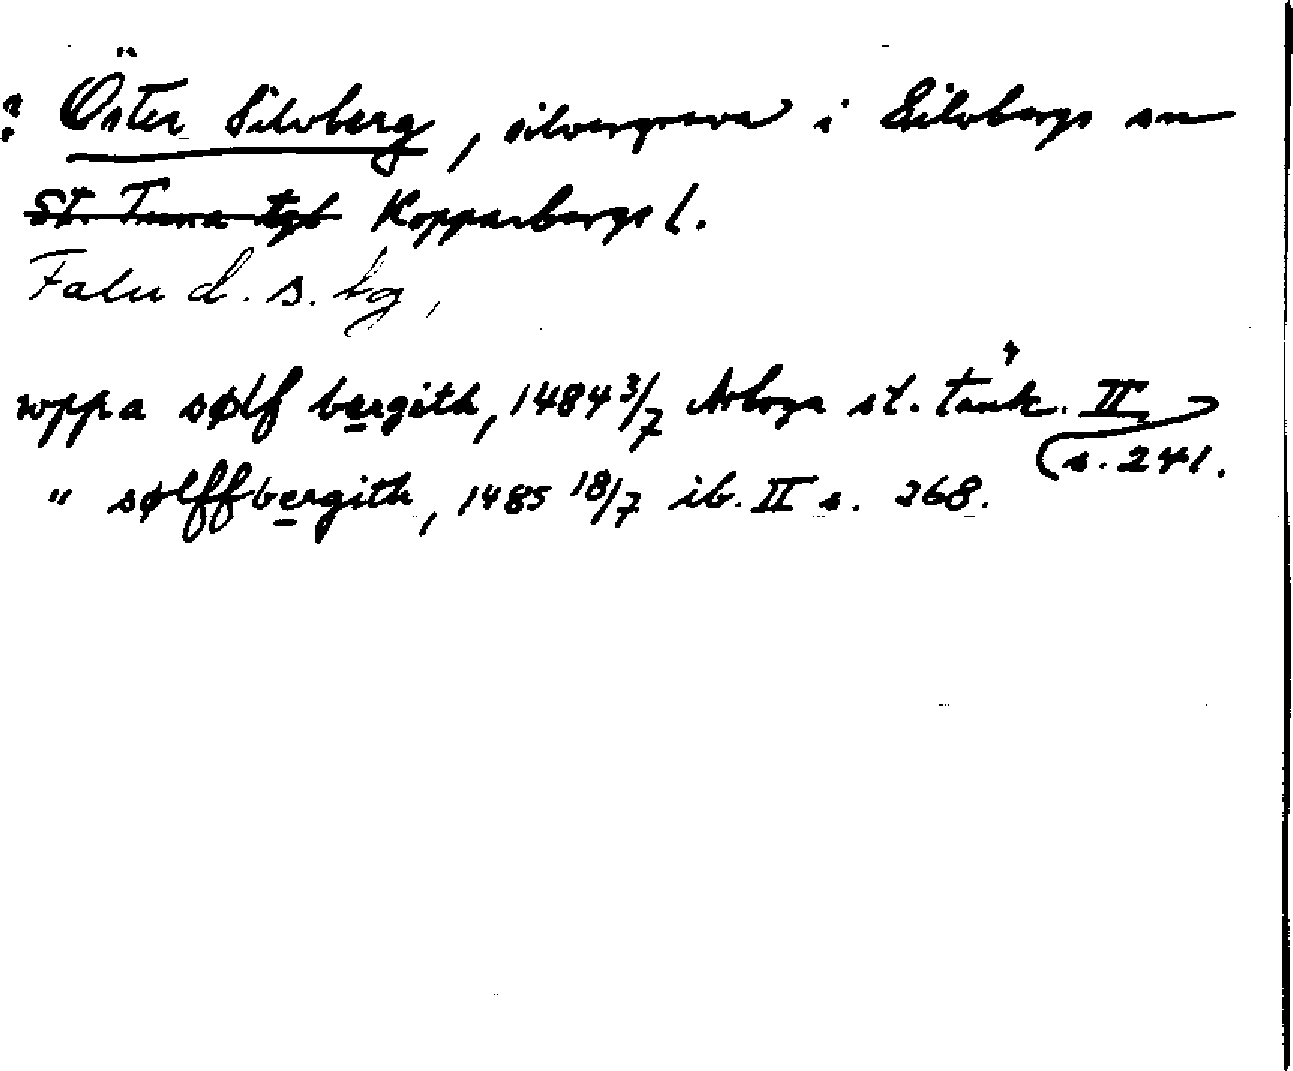 ? Öster Silvberg, silvergruva i Silvbergs sn
St. Tuna tgl Kopparbergs l.
Falu d. s. lg,
wppa sølf bergith, 1484 3/7 Arboga st. tänk. II
s. 241.
" sølffbergith, 1485 18/7 ib. II s. 268.